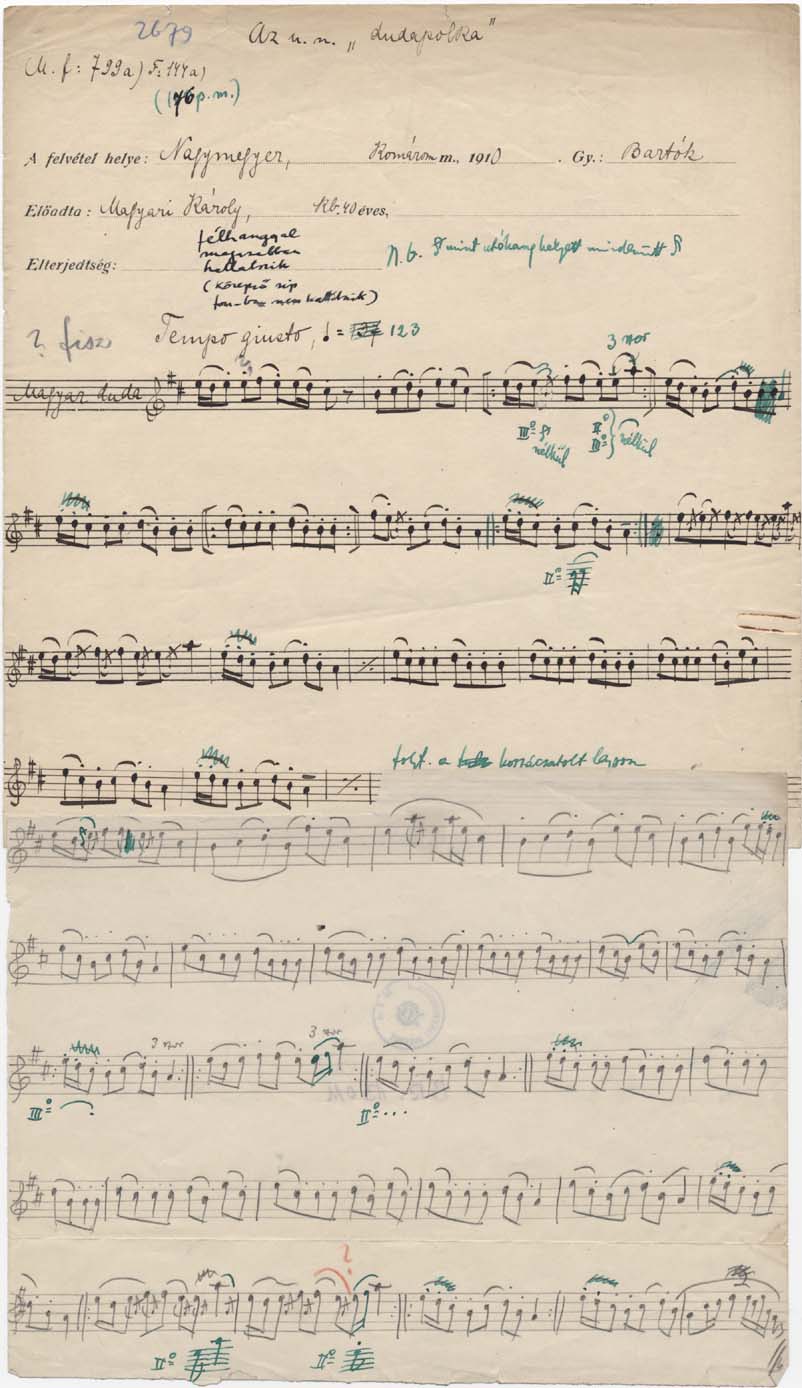 2679 Az u. n. „dudapolka"
(M. f: 799a) F: 144a)
(176 p. m.)
A felvétel helye: Nagymegyer, Komárom m., 1910. Gy.: Bartók
Előadta: Magyari Károly, kb. 40 éves,
Elterjedtség: félhanggal
magasabban
hallatszik
(középső sip
fon-ba nem hallátszik)
N. b. mint utóhang helyett mindenütt
? fisz Tempo giusto, = 123
3 szor
Magyar duda
III° nélkül
II° III° nélkül
II°
folyt. a hozzácsatolt lapon
3 szor 3 szor
III° II°
?
II° II°